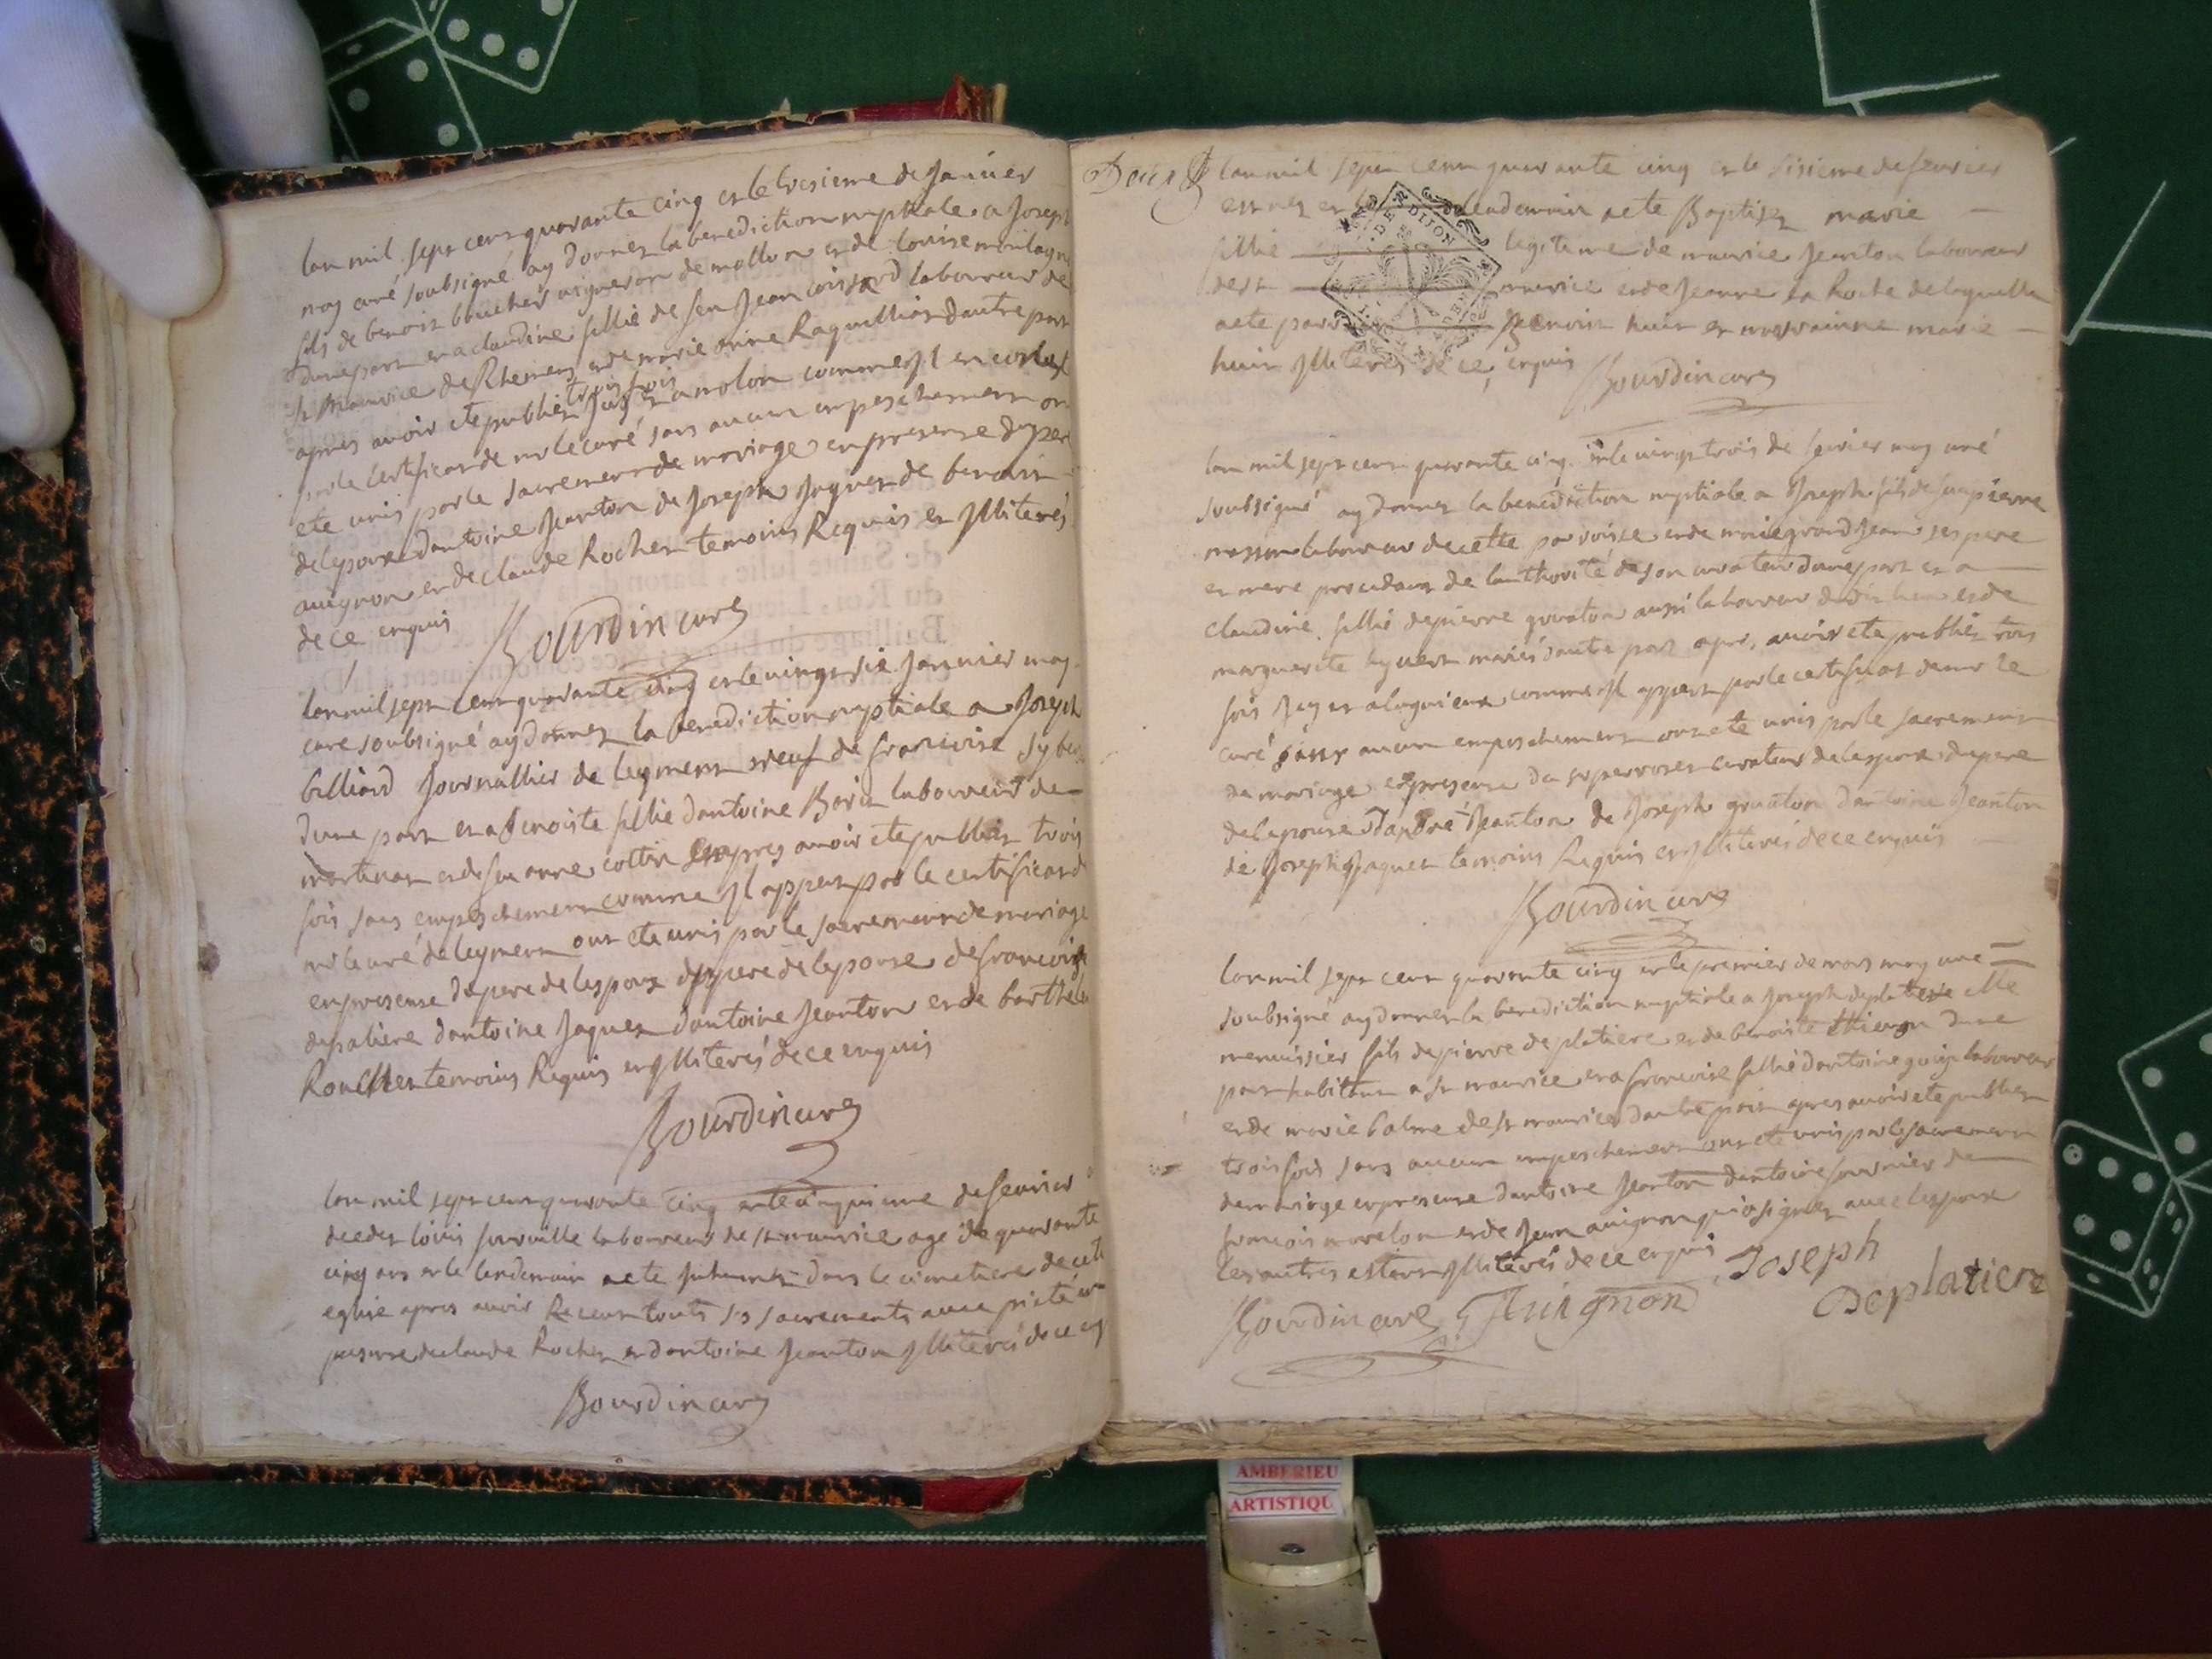 lan mil sept cent quarante cinq et le troisieme de Janvier
moy curé soubsigné ay donnez la benediction nuptiale a Joseph
fils de benoit boucher vigneron de mollon et de louise montagn
dune part et a claudine fillie de feu Jean laboureur de
St Maurice de Rhemens et de marie anne Raquillion dautre part
apres avoir ete publiez trois fois Jcy et a molon comme Jl en
par le certificat de mr le curé sans aucun empeschement on
ete unis par le sacrement de mariage en presense du per
de lepouse dantoine Jeanton de Joseph Jaquet de benoit
avignon et de claude Rochet temoins Requis et Jlliterés
de ce enquis
Bourdin curé
lan mil sept cent quarante cinq et le vingt six Janvier moy
curé soubsigné ay donnez la benediction nuptiale a Joseph
billiard Journallier de leyment veuf de francoise
dune part et a benoite fillie dantoine laboureur de
martinas et de feu anne cottin apres avoir ete publiez trois
fois sans empeschement comme Jl appert par le certificat d
mr le curé de leyment ont ete unis par le sacrement de mariage
en presense du pere de lespoux du pere de lepouse de francois
dantoine Jaquet dantoine Jeanton et de barthele
temoins Requis et Jlliterés de ce enquis
Bourdin curé
lan mil sept cent quarante cinq et le cinquieme de fevrier a
decedez louis laboureur de st maurice agé de quarante
cinq ans et le lendemain a ete Jnhumez dans le cimetiere de cette
eglise apres avoir Receu touts ses sacrements avec pieté en
presense de claude Rochet et dantoine Jeanton Jlliterés de ce enq
Bourdin curé
lan mil sept cent quarante cinq et le sisieme de fevrier
est nez et le lendemain a ete Baptisez marie
fillie legitime de maurice Jeanton laboureur
de st maurice et de Jeanne la Roche de laquelle
a ete parr Benoit huit et marrainne marie
huit Jlliterés de ce enquis
Bourdin curé
lan mil sept cent quarante cinq et le vingt trois de fevrier moy curé
soubsigné ay donnez la benediction nuptiale a Joseph fils de feu pierre
laboureur de cette parroisse et de marie grand Jean ses pere
et mere procedant de lauthorité de son curateur dune part et a
claudine fillie de pierre gonaton aussi laboureur et de
marguerite mariés dautre part apres avoir ete publiez trois
fois Jcy et a lagnieux comme Jl appert par le certificat de mr le
curé sans aucun empeschement ont ete unis par le sacrement
de mariage en presense du curateur de lespoux du pere
de lepouse dandré Jeanton de Joseph dantoine Jeanton
de Joseph Jaquet temoins Requis et Jlliterés de ce enquis
Bourdin curé
lan mil sept cent quarante cinq et le premier de mars moy curé
soubsigné ay donnez la benediction nuptiale a Joseph deplatiere
menuisier fils de pierre deplatiere et de benoite dune
part habitant a st maurice et a francoise fillie dantoine laboureur
et de marie balme de st maurice dautre part apres avoir ete publiez
trois fois sans aucun empeschement ont ete unis par le sacrement
de mariage en presense dantoine Jeanton dantoine fournier de
francois morelon et de Jean avignon qui a signez avec lespoux
les autres estant Jlliterés de ce enquis Joseph
Bourdin curé J Avignon Deplatiere
AMBERIEU
ARTISTIQU